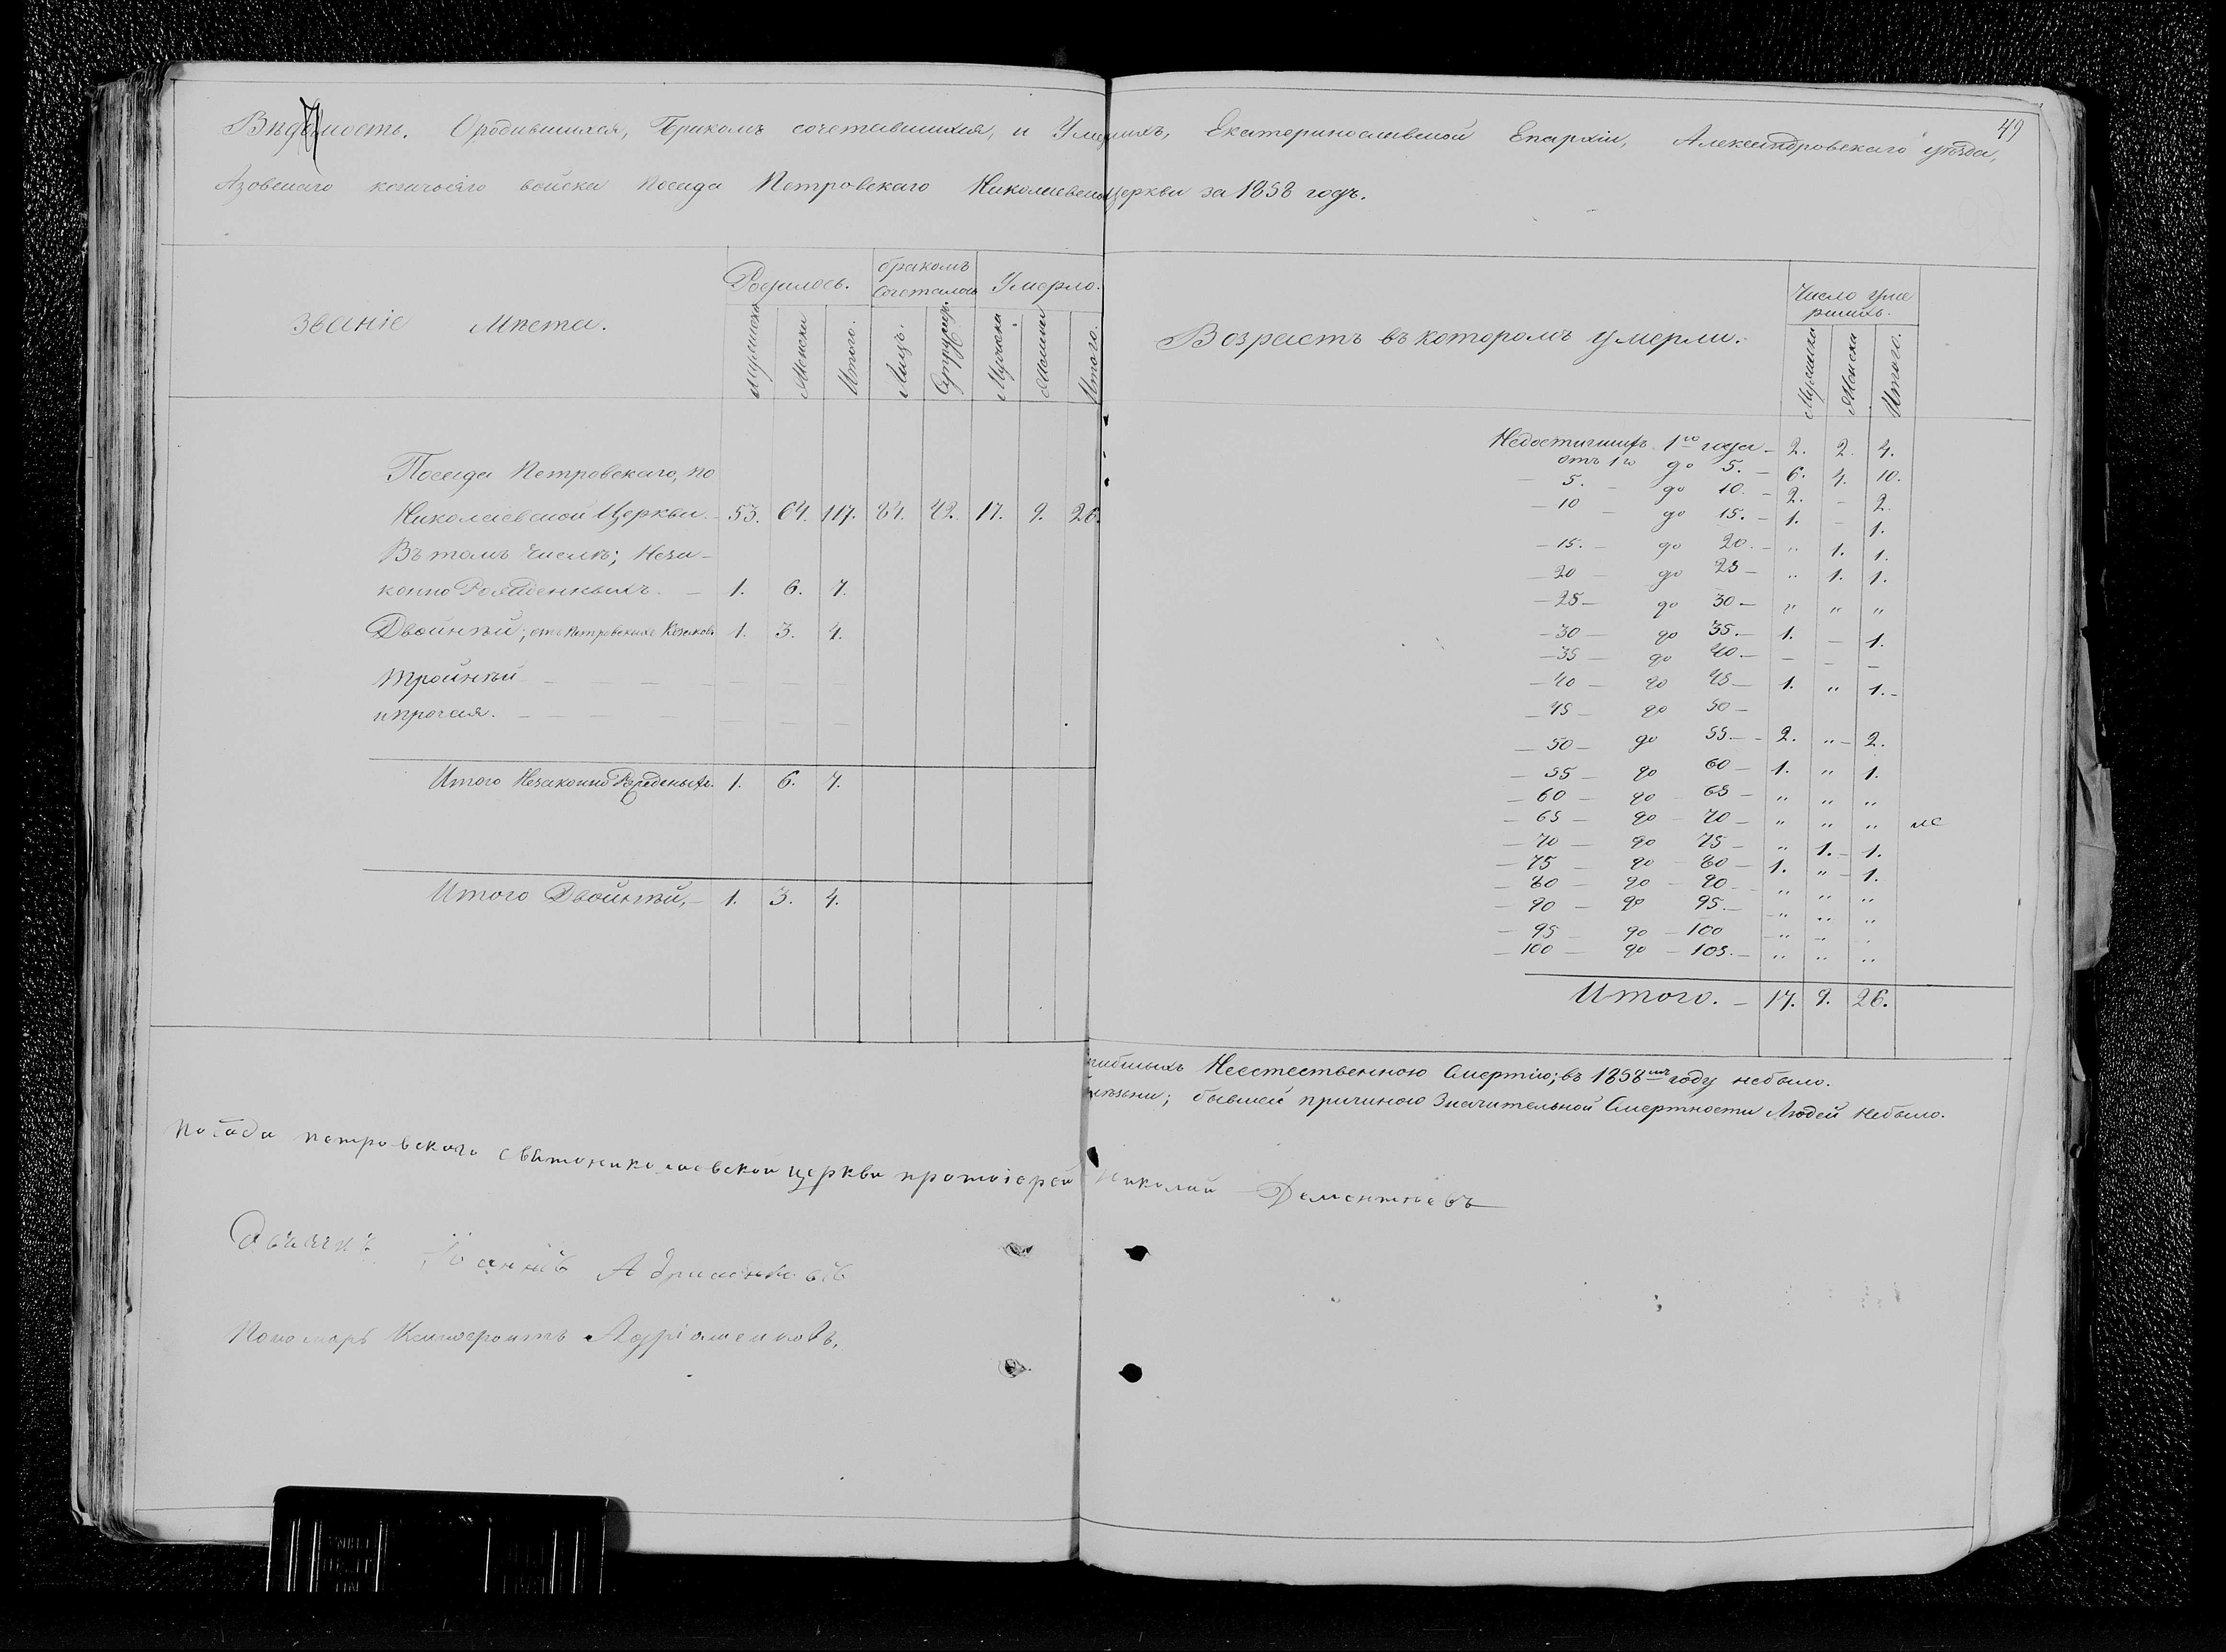 49
Вѣдомость. О родившихся, Бракомъ сочетавшихся, и Умершихъ, Екатеринославской Епархіи, Александровскаго уѣзда,
Азовскаго казачьяго войска посада Петровскаго Николаевской церкви за 1858 годъ.
Званіе Мѣста.
Родилось. бракомъ Сочеталось Умерло.
Мужеска Женска Итого. Лицъ. Супружес. Мужеска Женска Итого.
Посада Петровскаго, по
Николаевской Церкви. – 53. 64. 117. 84. 42. 17. 9. 26.
Въ томъ числѣ; Неза-
конно Рожденныхъ. – 1. 6. 7.
Двойнѣй; отъ Петровскихъ Козаковъ 1. 3. 4.
Тройнѣй – – – – – – –
и прочая. – – – – – – –
Итого Незаконно Рожденыхъ. 1. 6. 7.
Итого Двойнѣй, – 1. 3. 4.
Возрастъ въ которомъ умерли.
Число уме
ршихъ.
Мужеска Женска Итого.
Недостигшихъ 1го года – 2. 2. 4.
отъ 1го до 5. – 6. 4. 10.
– 5. – до 10. – 2. – 2.
– 10 – до 15. – 1. – 1.
– 15. – до 20. – " 1. 1.
– 20 – до 25 – " 1. 1.
– 25 – до 30 – " " "
– 30 – до 35. – 1. – 1.
– 35 – до 40 – – – –
– 40 – до 45 – 1. " 1. –
– 45 – до 50 –
– 50 – до 55. – 2. " – 2.
– 55 – до 60 – 1. " 1.
– 60 – до 65 – " " "
– 65 – до 70 – " " "
– 70 – до 75 – " 1. – 1.
– 75 – до 80 – 1. " – 1.
– 80 – до – 90 – " " "
– 90 – до 95. – " " "
– 95 до – 100 – " – .
– 100 – до – 105. – " " "
Итого. – 17. 9. 26.
гибшихъ Неестественною Смертію; въ 1858мъ году небыло.
лѣзни; бывшей причиною Значительной Смертности Людей небыло.
посада петровского святониколаевской церкви протоіерей Николай Дементіевъ
Дьячекъ Іоаннъ Адріаненковъ
Пономарь Ксенофонтъ Адріаненковъ.